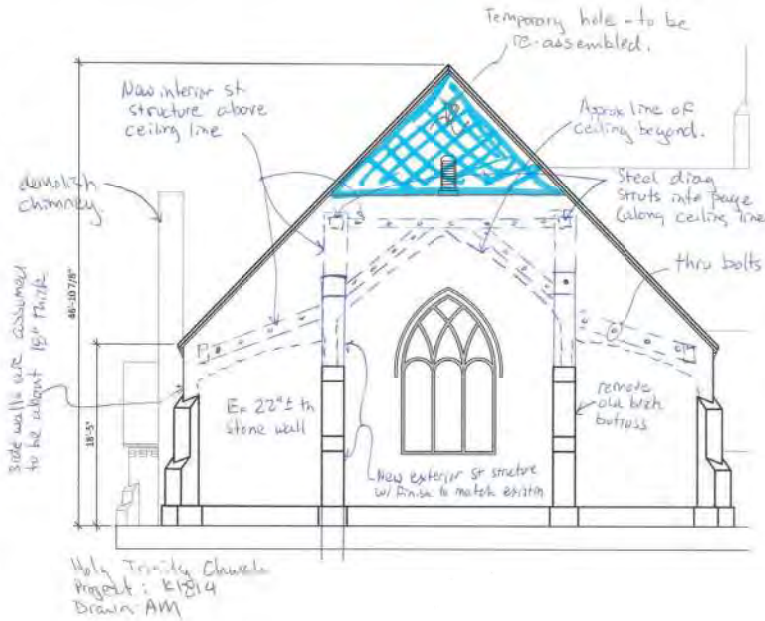 Temporary hole - to be
re-assembled.
New interior st
structure above
ceiling line
Approx line of
ceiling beyond.
demolish
chimney
Steel diag
struts into page
(along ceiling line
thru bolts
46'-10 7/8"
18'-5"
side walls are assumed
to be about 18" thick
Ex 22"± th
stone wall
remove
old brick
buttress
New exterior st structure
w/ finish to match existin
Holy Trinity Church
Project:
Drawn: AM